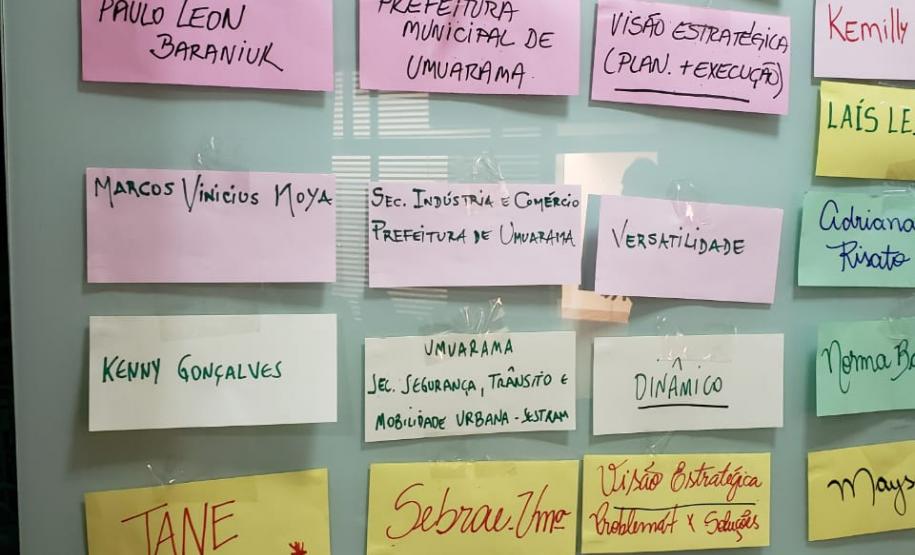 PAULO LEON
BARANIUK
PREFEITURA
MUNICIPAL DE
UMUARAMA
VISÃO ESTRATÉGICA
(PLAN. + EXECUÇÃO)
Kemilly
LAÍS LE
MARCOS VINICIUS MOYA
SEC. INDÚSTRIA E COMÉRCIO
PREFEITURA DE UMUARAMA
VERSATILIDADE
Adriana
Risato
KENNY GONÇALVES
UMUARAMA
SEC. SEGURANÇA, TRÂNSITO E
MOBILIDADE URBANA - SESTRAM
DINÂMICO
Norma
JANE
Sebrae-Uma
Visão Estratégica
Problemas x Soluções
Mays